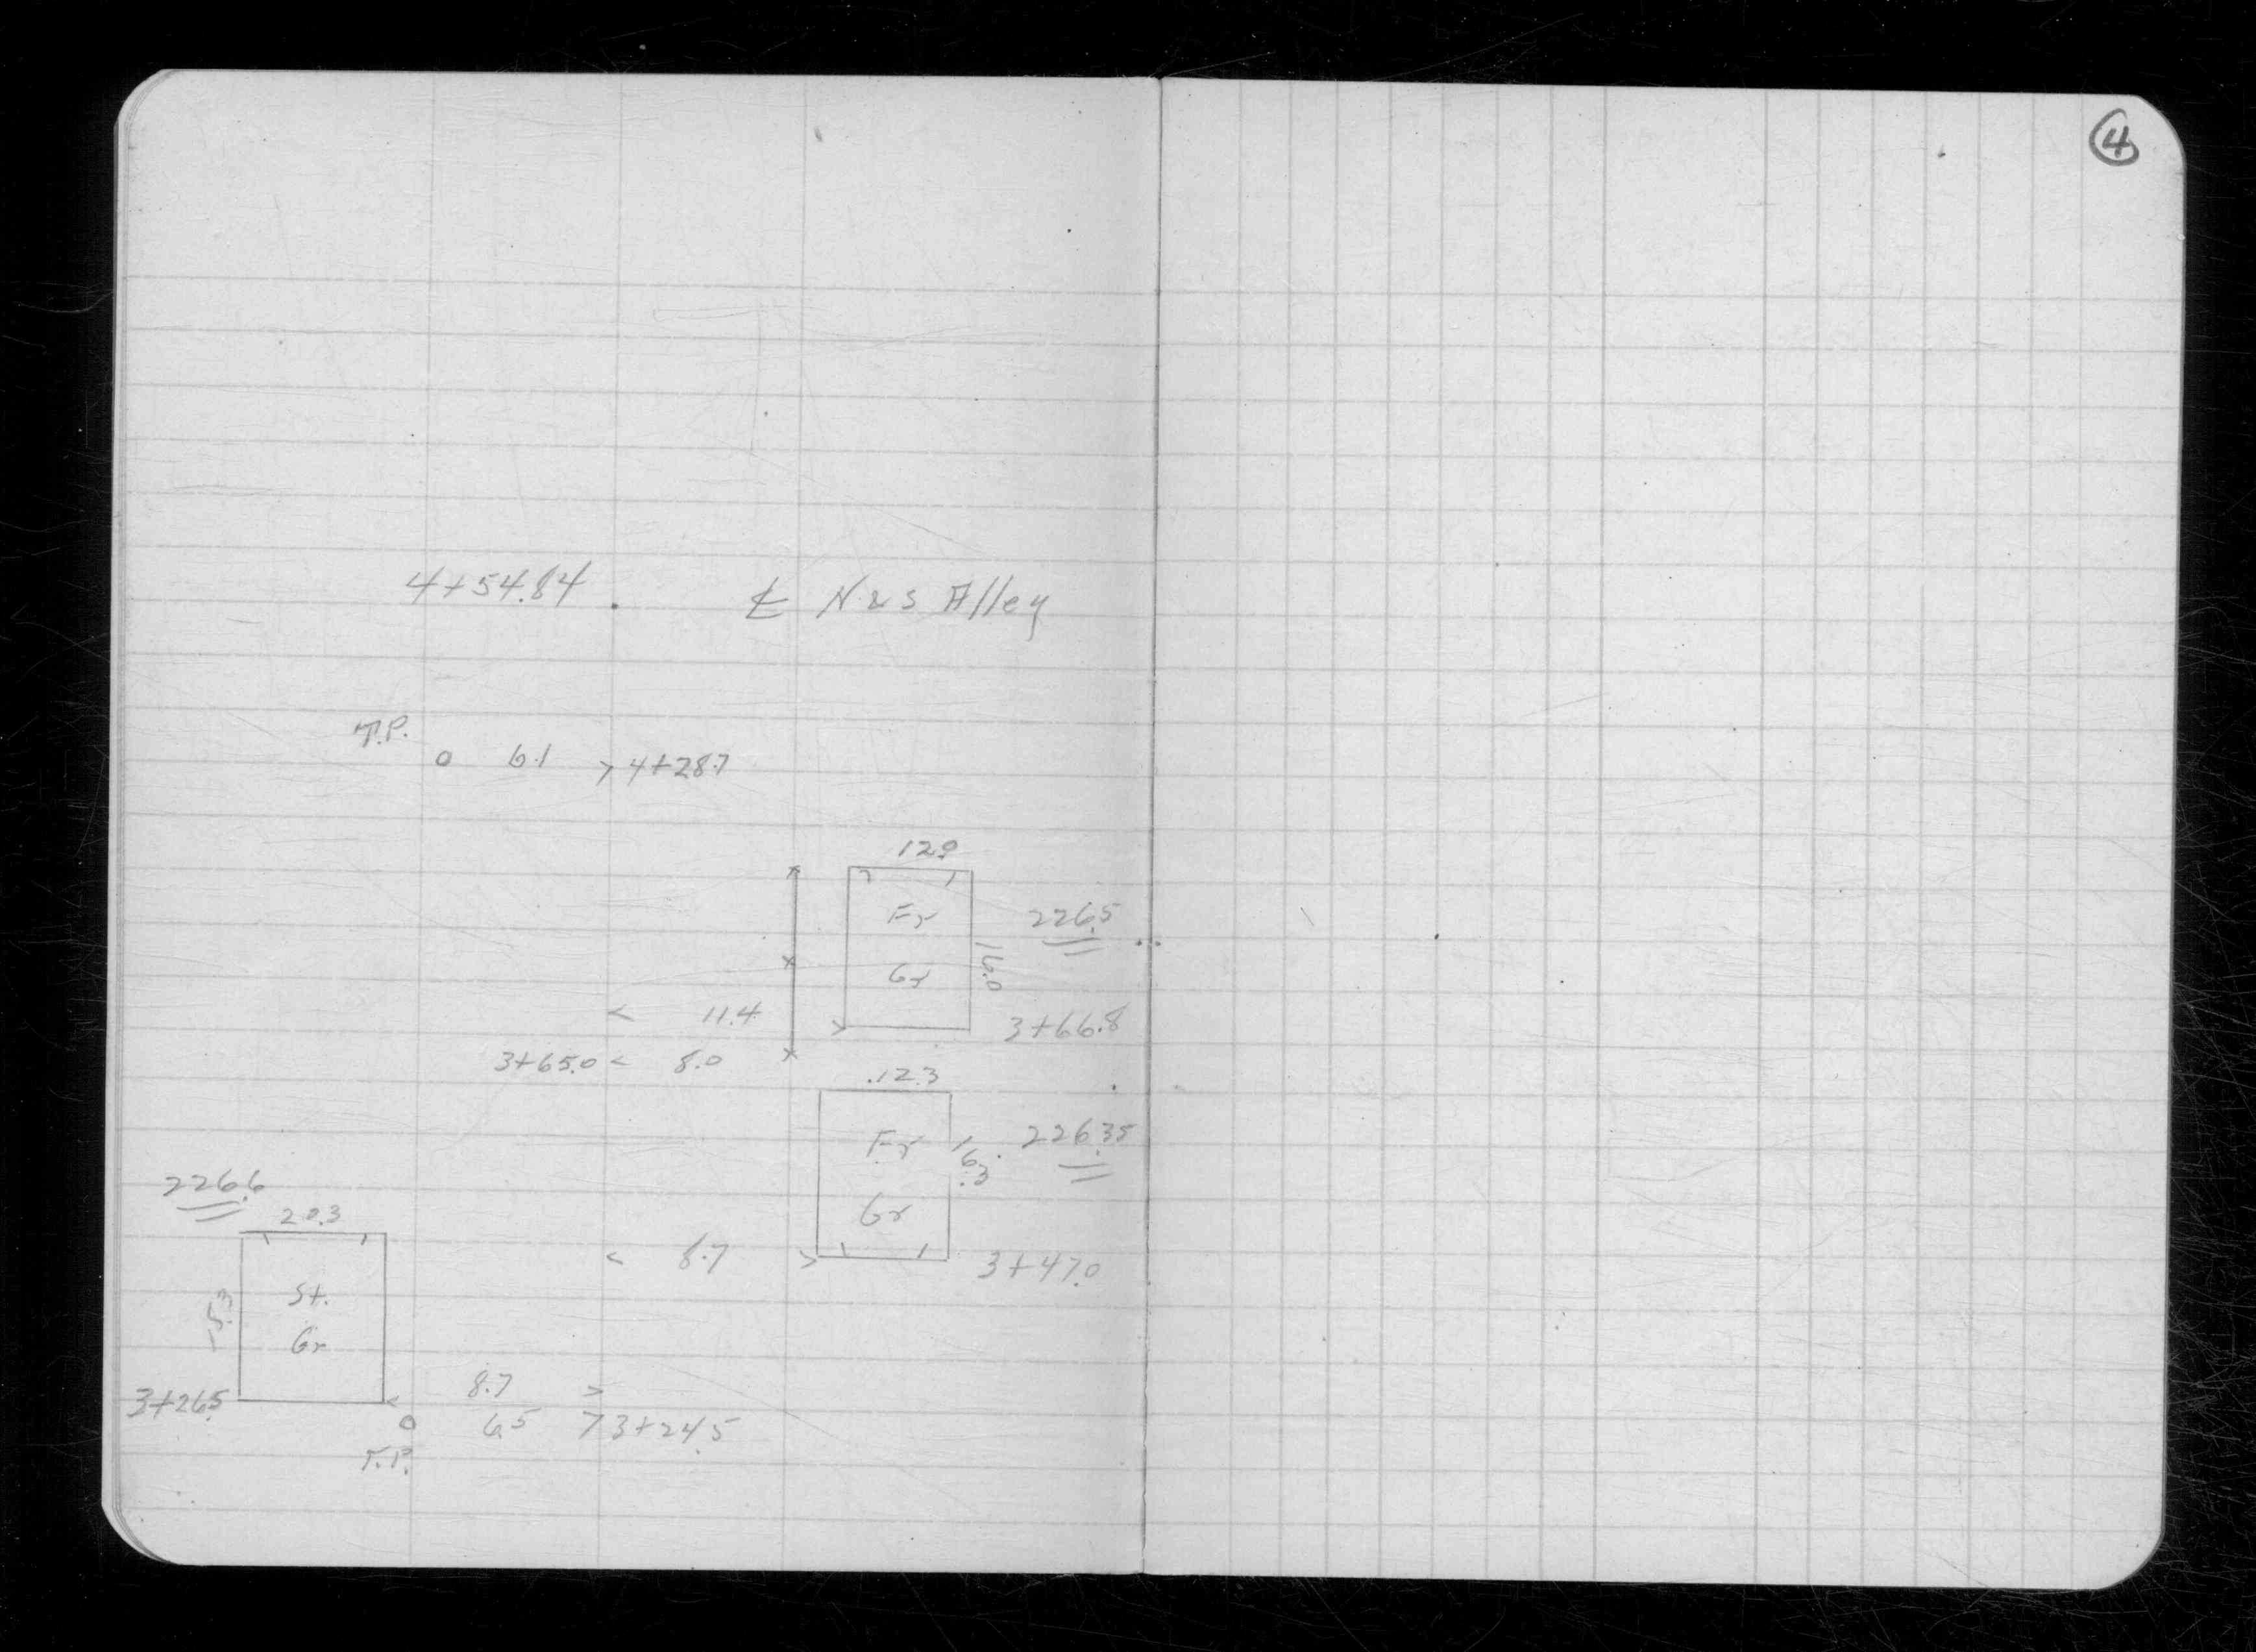 4
4+54.84 ℄ N & S Alley
T.P.
o 6.1 > 4+28.7
12.0
Fr
226.5
Gr
16.0
< 11.4 > 3+66.8
3+65.0 < 8.0
12.3
Fr
16.3
226.35
Gr
< 8.7 > 3+47.0
226.6
20.3
St.
15.3
Gr
3+26.5 < 8.7 >
o 6.5 > 3+24.5
T.P.